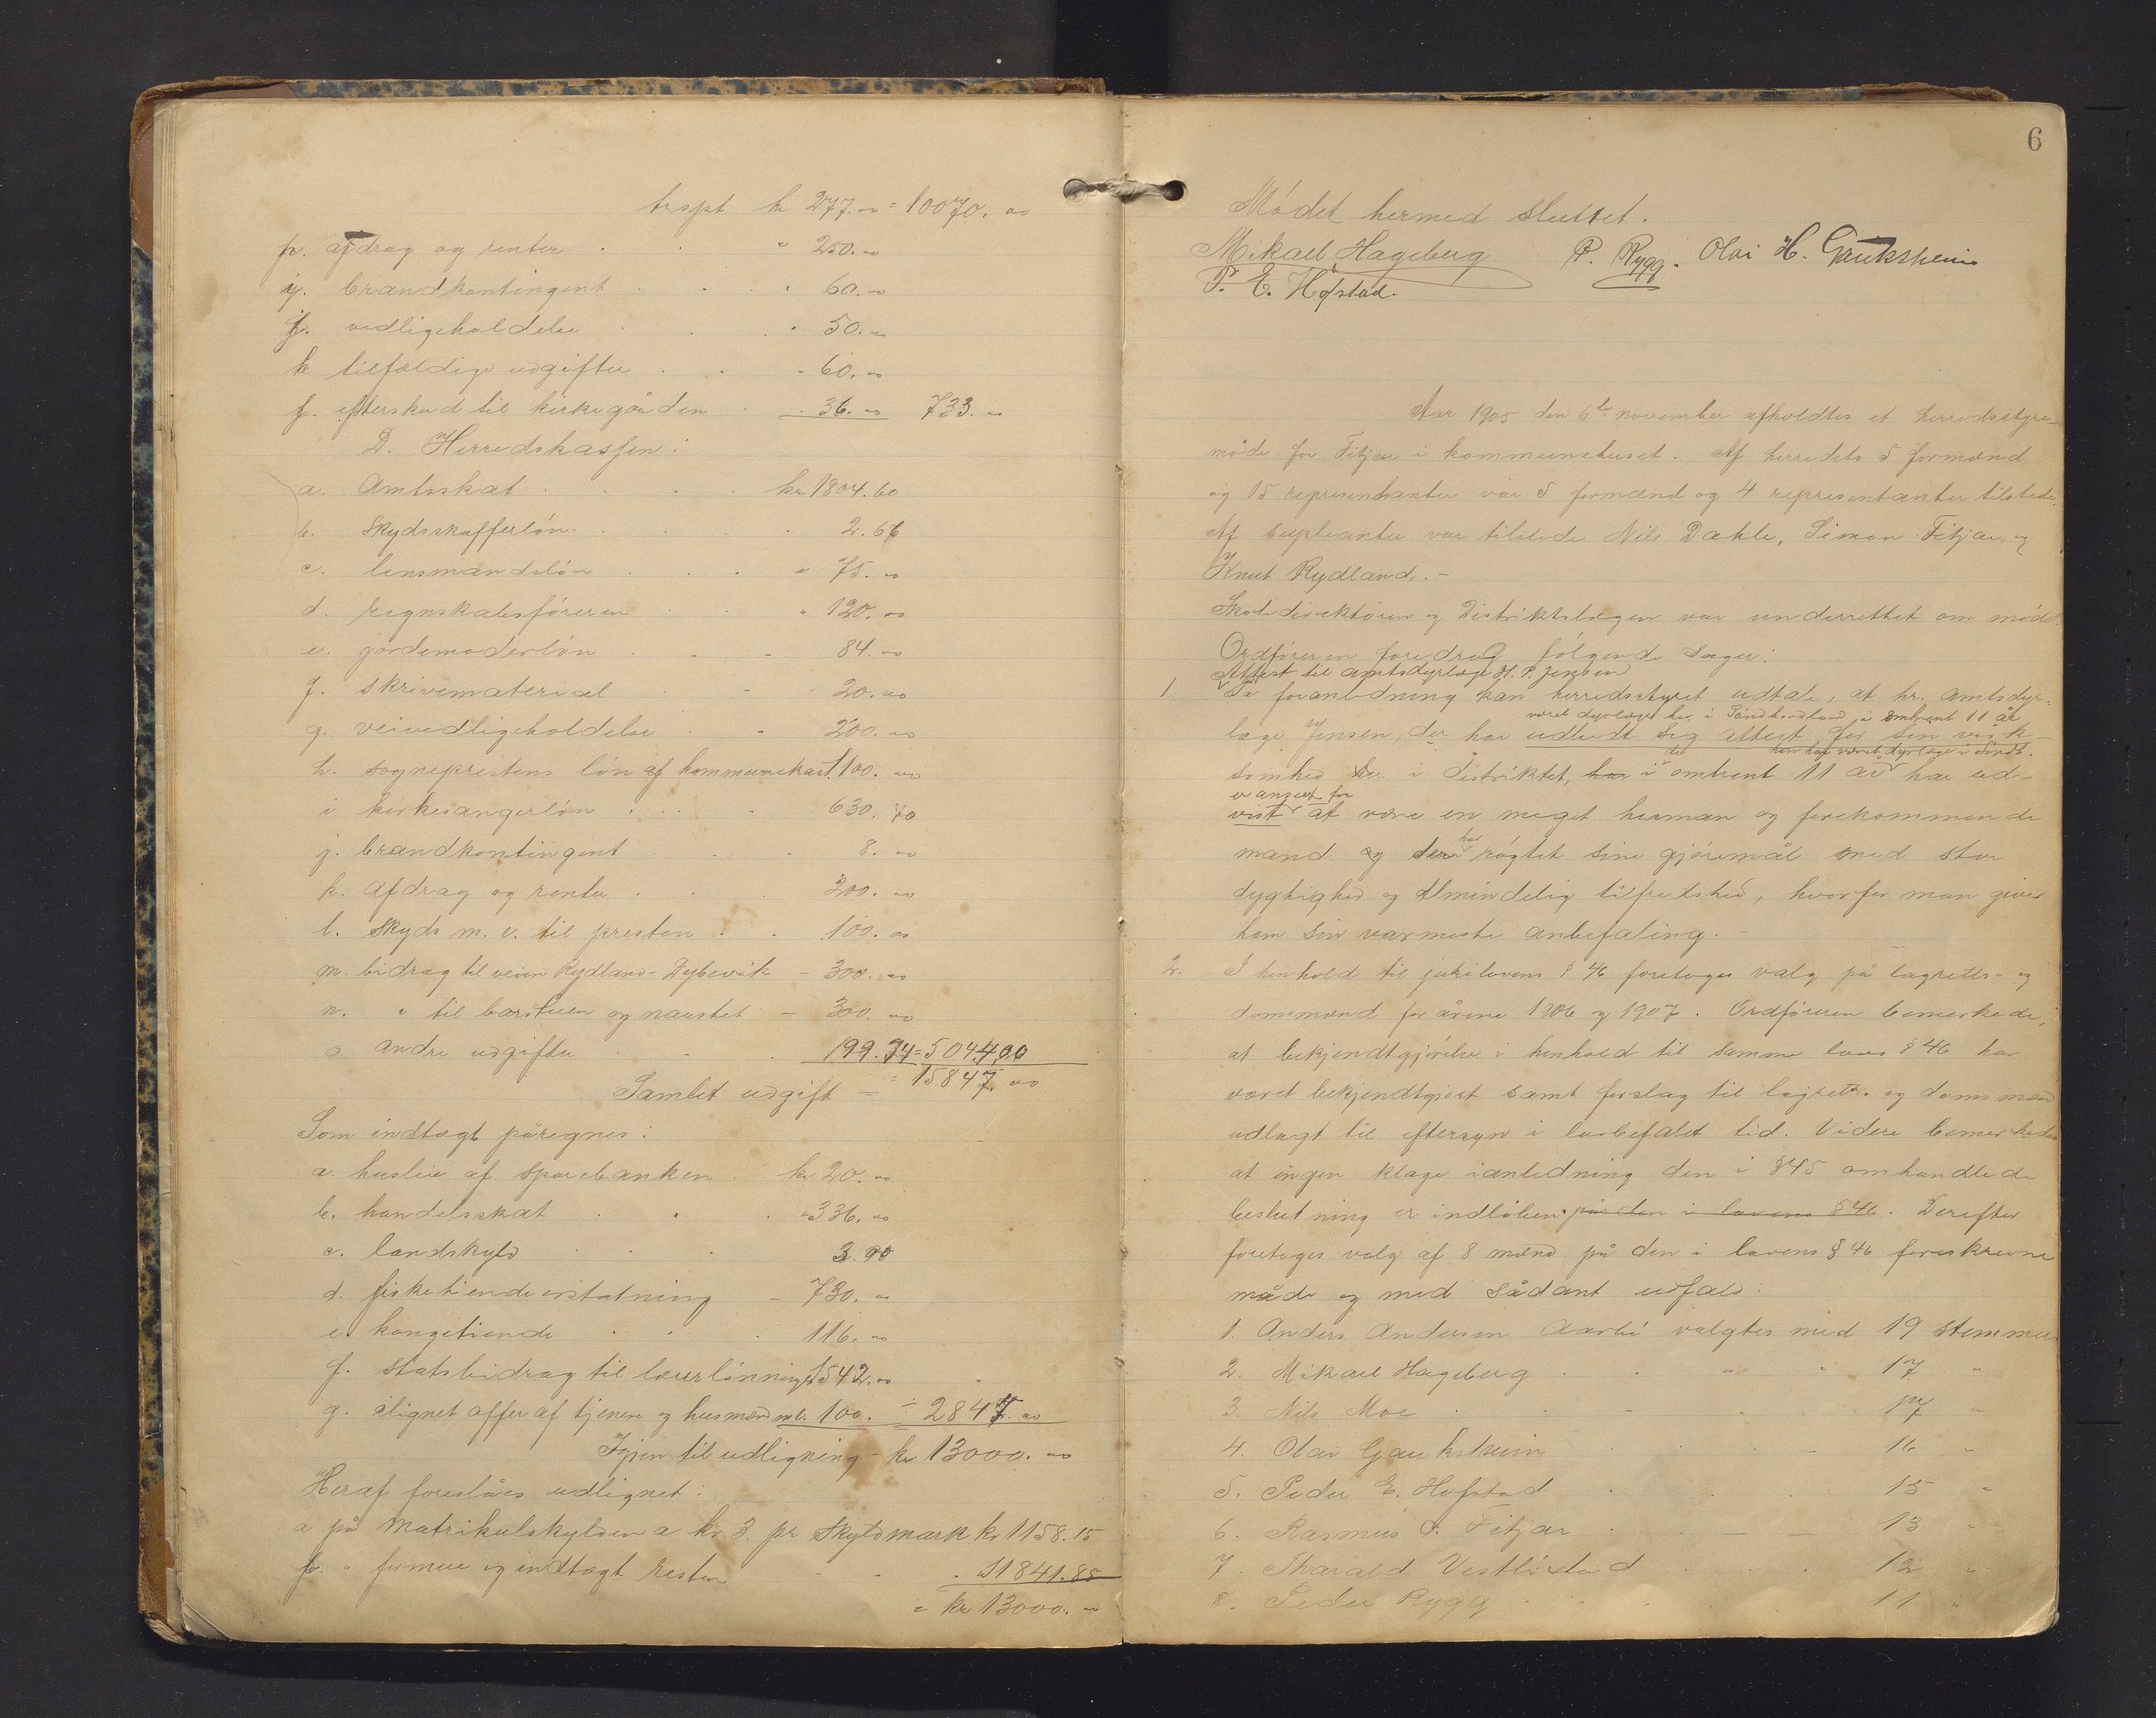 trspt kr 277.00 = 10070.00
h. afdrag og renter " 250.00
i. brandkontingent " 60.00
j. vedligeholdelse " 50.00
k tilfældige udgifter - 60.00
l. efterskud til kirkegården - 36.00 733.00
D. Herredskassen:
a. Amtsskat kr 1804.60
b. Skydsskafferløn 2.66
c. lensmandsløn " 75.00
d. regnskabsføreren " 120.00
e. jordemoderløn - 84.00
f. skrivemateriel - 20.00
g. veivedligeholdelse - 200.00
h. sogneprestens løn af kommunekas. 1100.00
i kirkesangerløn 630.40
j. brandkontingent 8.00
k. afdrag og renter 200.00
l. Skyds m. v. til presten 100.00
m. bidrag til veien Rydland-Dybevik - 300.00
n. " til barstuen og naustet - 300.00
o andre udgifter 199.34 = 5044.00
Samlet udgift = 15847.00
Som indtægt påregnes:
a. husleie af sparebanken kr 20.00
b. handelsskat " 336.00
c. landskyld 3.00
d. fisketiendeerstatning - 730.00
e. kongetiende 116.00
f. statsbidrag til lærerlønninger 1542.00
g. ålignet offer af tjenere og husmænd m.v. 100. = 2847.00
Igjen til udligning - kr 13000.00
Heraf foreslåes udlignet:
a på Matrikulskylden a kr 3. pr Skyldmark kr 1158.15
b. " formue og indtægt resten - - 11841.85
= kr 13000.00
6
Mødet hermed sluttet.
Mikael Hageberg P. Rygg. Olai H. Gaukstheim
P. E. Hofstad.
Aar 1905 den 6te november afholdtes et herredsstyre-
møde for Fitjar i kommunehuset. Af herredets 5 formænd
og 15 representanter var 5 formænd og 4 representanter tilstede.
Af supleanter var tilstede Nils Dahle, Simon Fitjar, og
Knut Rydland.-
Skoledirektøren og Distriktslægen var underrettet om mødet.
Ordføreren foredrag følgende sager:
Attest til amtsdyrlæge H. P. Jensen
1 I foranledning kan herredsstyret udtale, at hr. amtsdyr-
været dyrlæge her i Søndhordland i omtrent 11 år
læge Jensen, der har udbedt sig attest for sin virk-
han har været dyrlæge i Søndh.
somhed her i distriktet, har i omtrent 11 år har ud-
er anseet for
vist at være en meget human og forekommende
har
mand og der røgtet sine gjøremål med stor
dygtighed og almindelig tilfredshed, hvorfor man giver
ham sin varmeste anbefaling.-
2. I henhold til jurilovens § 46 foretoges valg på lagretts- og
domsmænd for årene 1906 og 1907. Ordføreren bemerkede,
at bekjendtgjørelse i henhold til samme lovs § 46 har
været bekjendtgjort samt forslag til lagretts og domsmænd
udlagt til eftersyn i lovbefalet tid. Videre bemerkedes
at ingen klage ianledning den i §45 omhandlede
beslutning er indløben på den i lovens §46. Derefter
foretoges valg af 8 mænd på den i lovens § 46 foreskrevne
måde og med sådant udfald:
1. Anders Andersen Aarbø valgtes med 19 stemmer
2. Mikael Hageberg " " 17 "
3. Nils Moe 17 "
4. Olai Gaukstheim 16 "
5. Peder E. Hofstad 15 "
6. Rasmus O. Fitjar 13 "
7. Tharald Vestbøstad 12 "
8. Peder Rygg 11 "